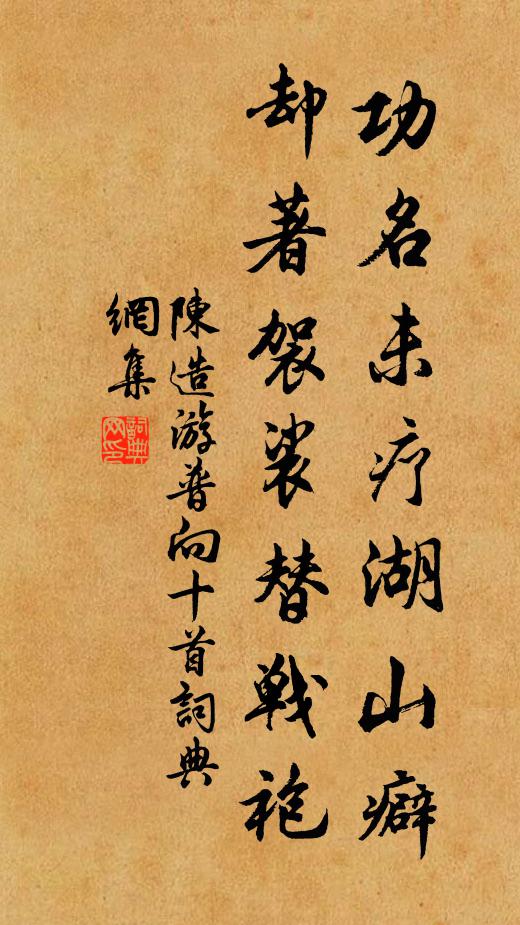 功名未疗湖山癖
却著袈裟替戦袍
陳造游普向十首詞典
網集
詞典
网印